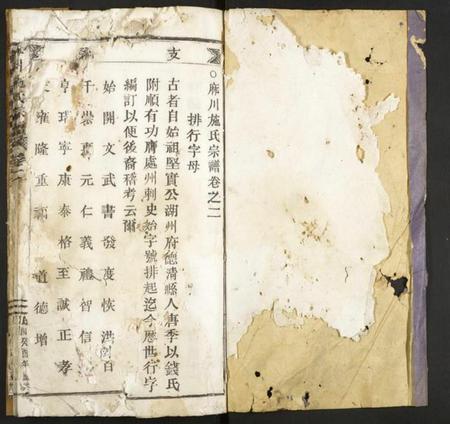 ○麻川施氏宗譜卷之二
排行字母
古者自始祖堅實公湖州府德清縣人唐季以錢氏
附順有功膺處州刺史始字號排起迄今歷世行字
編訂以便後裔稽考云爾
始開文武書發度恢洪 百
千崇 元仁義禮智信
卓 寧康泰格至誠正孝
雍隆重 道德增